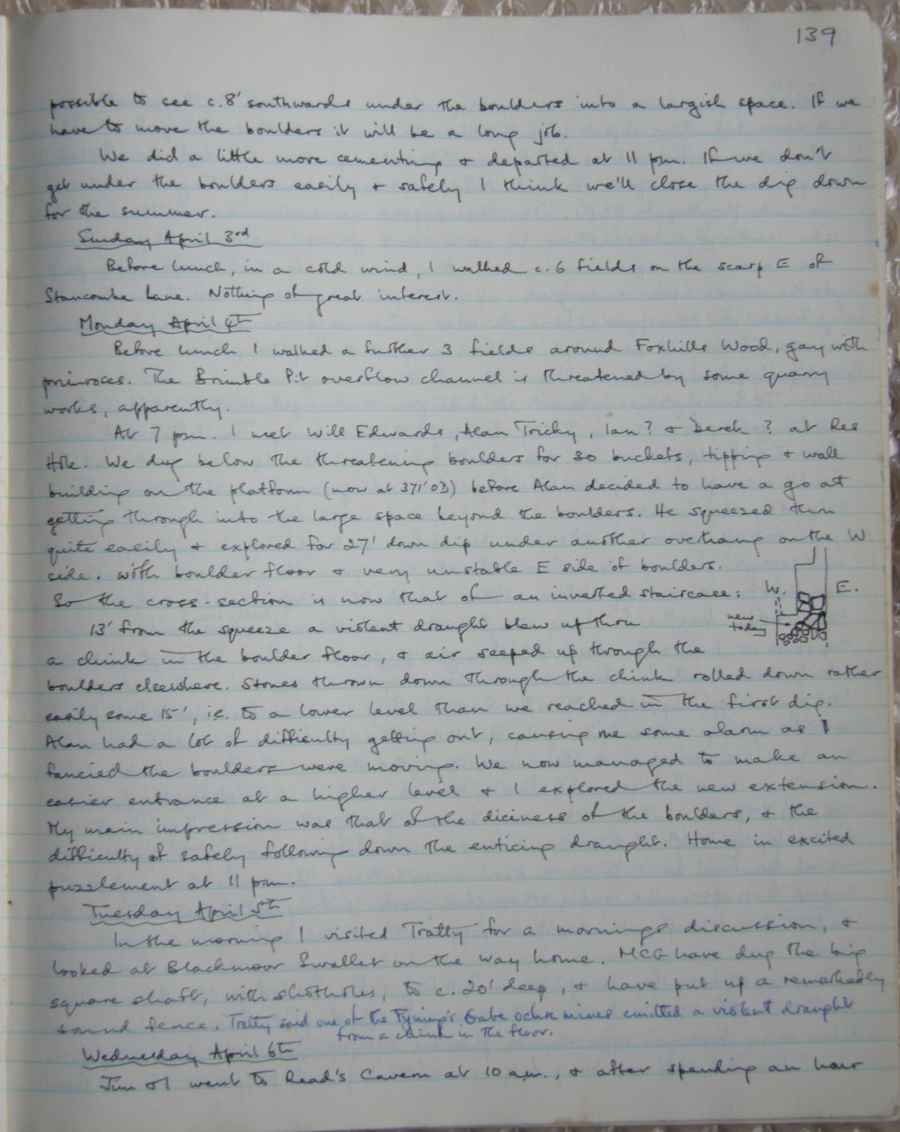 139
possible to see c.8' southwards under the boulders into a largish space. If we
have to move the boulders it will be a long job.
We did a little more cementing & departed at 11 pm. If we don't
get under the boulders easily & safely I think we'll close the dig down
for the summer.
Sunday April 3rd
Before lunch, in a cold wind, I walked c.6 fields on the scarp E of
Stancombe Lane. Nothing of great interest.
Monday April 4th
Before lunch I walked a further 3 fields around Foxhills Wood, gay with
primroses. The Brimble Pit overflow channel is threatened by some quarry
works, apparently.
At 7 pm. I met Will Edwards, Alan Tricky, Ian? & Derek? at Ree
Hole. We dug below the threatening boulders for 30 buckets, tipping & wall
building on the platform (now at 371' OD) before Alan decided to have a go at
getting through into the large space beyond the boulders. He squeezed thru
quite easily & explored for 27' down dip under another overhang on the W
side, with boulder floor & very unstable E side of boulders.
So the cross-section is now that of an inverted staircase: W. E.
new
today
13' from the squeeze a violent draught blew up thru
a chink in the boulder floor, & air seeped up through the
boulders elsewhere. Stones thrown down through the chink rolled down rather
easily some 15', i.e. to a lower level than we reached in the first dig.
Alan had a lot of difficulty getting out, causing me some alarm as I
fancied the boulders were moving. We now managed to make an
easier entrance at a higher level & I explored the new extension.
My main impression was that of the diciness of the boulders, & the
difficulty of safely following down the enticing draught. Home in excited
puzzlement at 11 pm.
Tuesday April 5th
In the morning I visited Tratty for a mornings discussion, &
looked at Blackmoor Swallet on the way home. MCG have dug the big
square shaft, with shotholes, to c.20' deep, & have put up a remarkably
sound fence. Tratty said one of the Tyning's Gate ochre mines emitted a violent draught
from a chink in the floor.
Wednesday April 6th
Jim & I went to Read's Cavern at 10 a.m., & after spending an hour